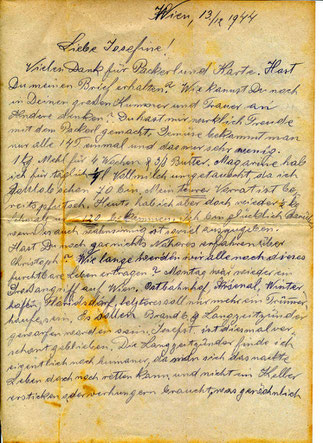 Wien, 13/12 1944
Liebe Josefine!
Vielen Dank für Packerl und Karte. Hast
Du meinen Brief erhalten? Wie kannst Du noch
in Deinem großen Kummer und Trauer an
Andere denken! Du hast mir wirklich Freude
mit dem Packerl gemacht, Gemüse bekommt man
nur alle 14 T einmal und das nur sehr wenig.
1 kg Mehl für 4 Wochen & Butter. Magarine hab
ich für täglich Vollmilch umgetauscht, da ich
Mein teurer Vorrat ist be-
reits pfutsch. Heute hab ich aber doch wieder
120 bekommen. Ich bin glücklich
wenn es auch wahnsinnig ist soviel auszugeben.
Hast Du noch gar nichts Näheres erfahren über
Christoph? Wie lange werden wir alle noch dieses
furchtbare Leben ertragen? Montag war wieder ein
Großangriff auf Wien. Ostbahnhof Arsenal, Winter
hafen, Floridsdorf, letzteres soll nur mehr ein Trümmer
haufen sein. Es sollen Brand & Langzeitzünder
geworfen worden sein. Josefst. ist diesmal ver-
schont geblieben. Die Langzeitzünder finde ich
eigentlich noch humaner, da man sich das nackte
Leben doch noch retten kann, und nicht im Keller
ersticken oder verhungern braucht, was gewöhnlich